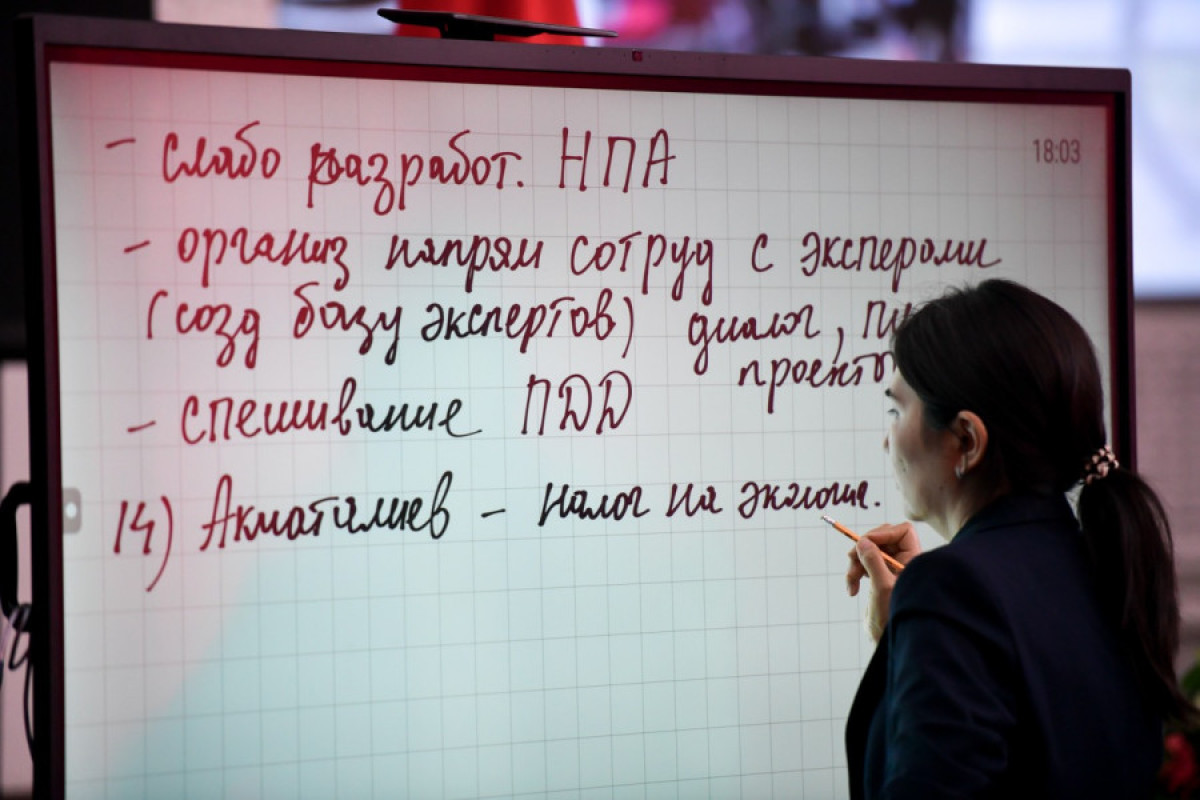 18:03
- слабо разработ. НПА
- организ напрям сотруд с эксперами
(созд базу экспертов) диалог,
проекты
- спешивание ПДД
14) Акматалиев - налог на экологие.